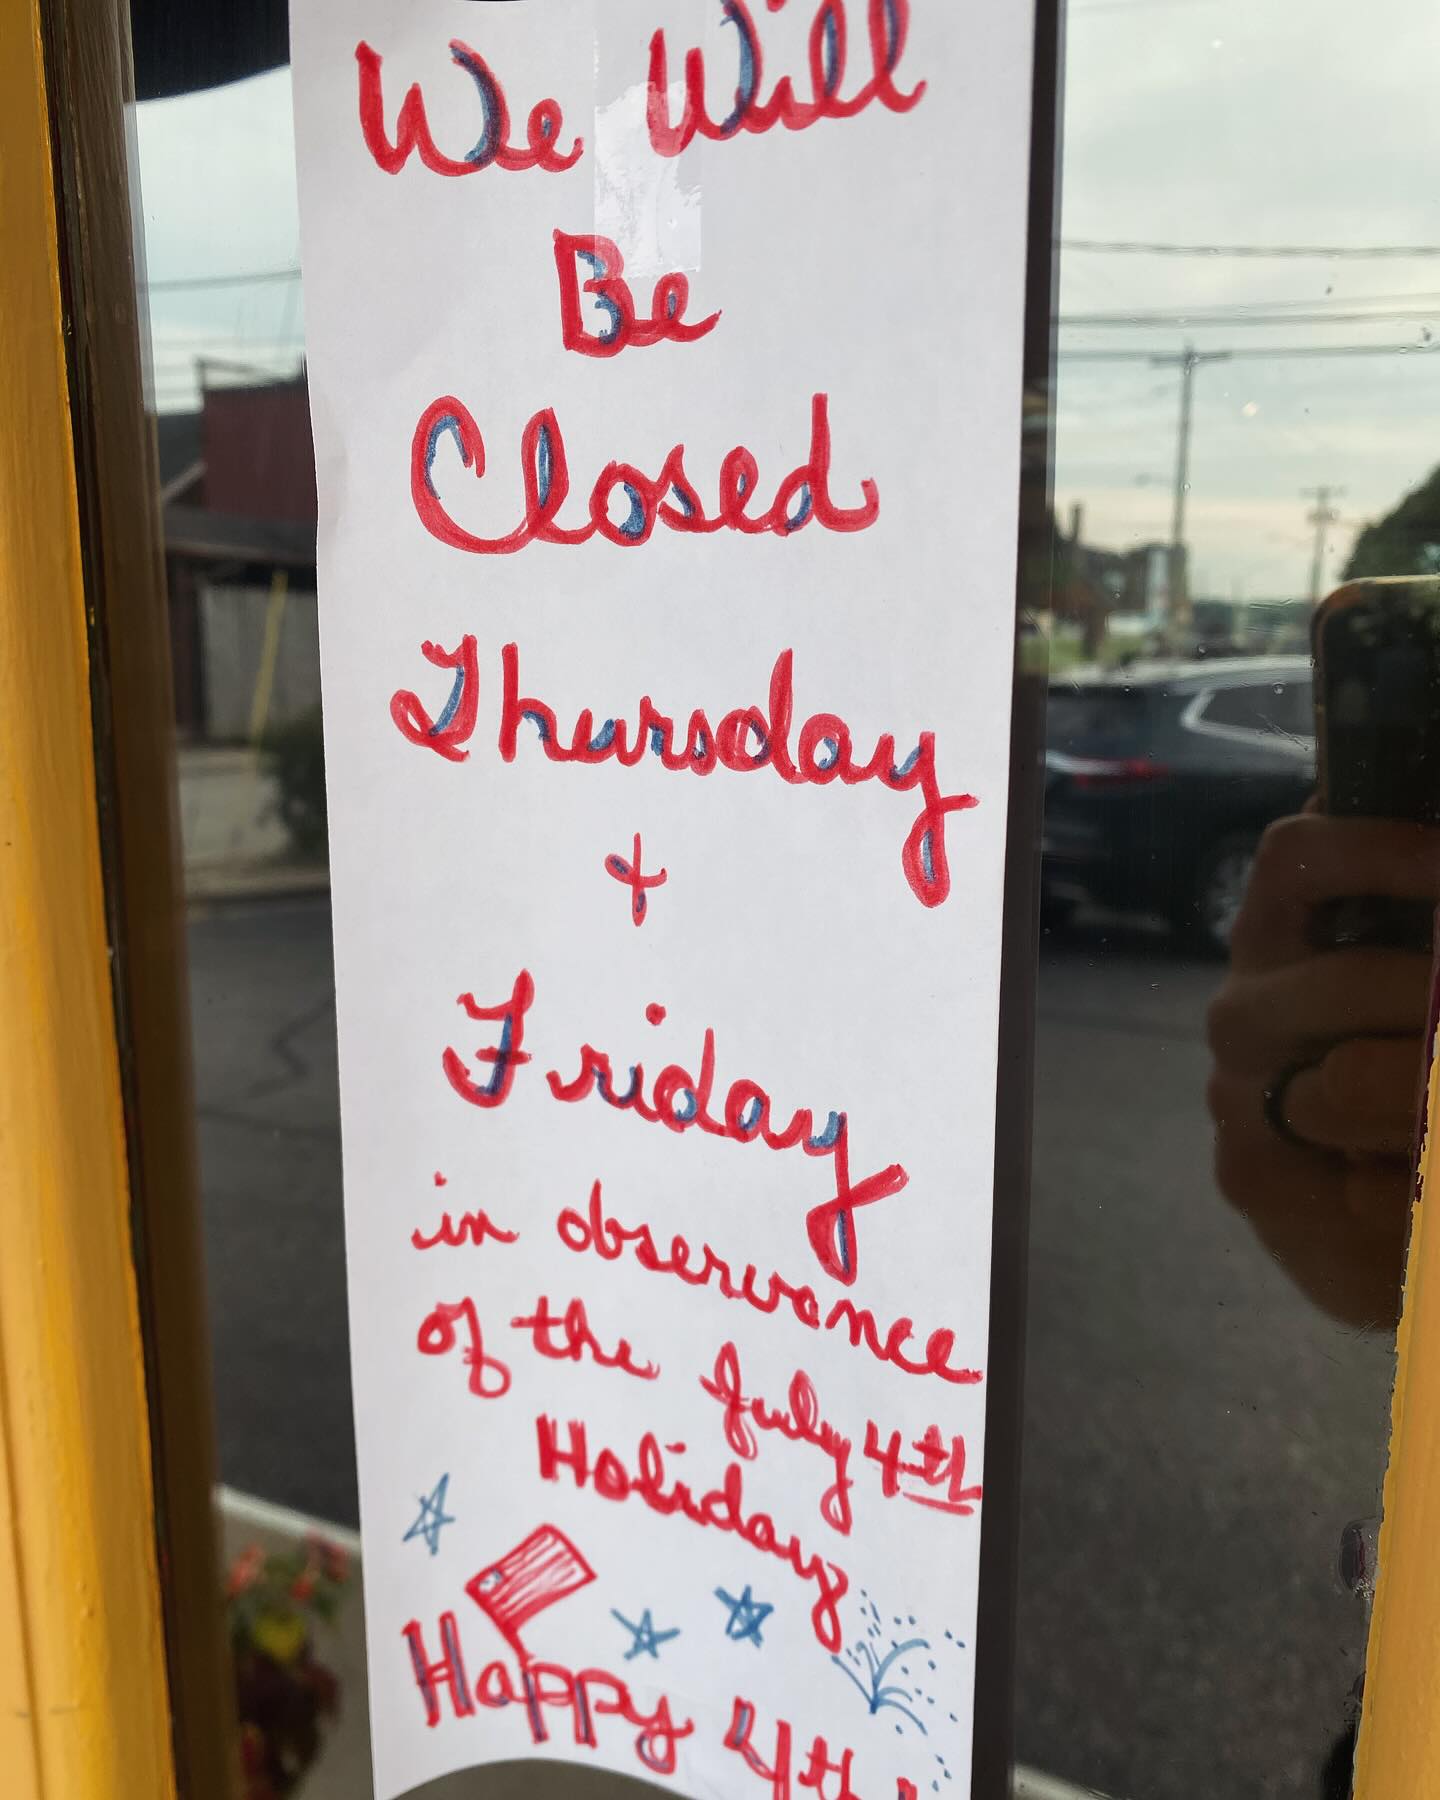 We Will
Be
Closed
Thursday
+
Friday
in observance
of the July 4th
Holiday
Happy 4th!